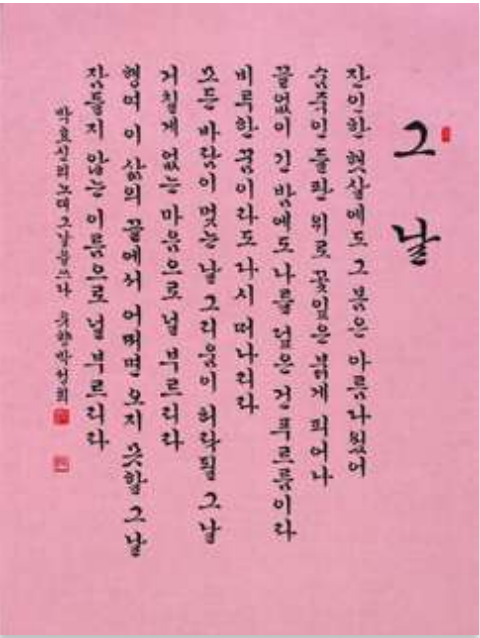 그날
잔인한 햇살에도 그 봄은 아름다웠어
숨죽인 들판 위로 꽃잎은 붉게 피어나
끝없이 긴 밤에도 나를 덮은 건 푸르름이라
비루한 꿈이라도 다시 떠나리라
모든 바람이 멎는 날 그리움이 허락될 그날
거칠게 없는 마음으로 널 부르리라
행여 이 삶의 끝에서 어쩌면 오지 못할 그날
잠들지 않는 이름으로 널 부르리라
박효신의 노래 그날을 쓰다 박성희